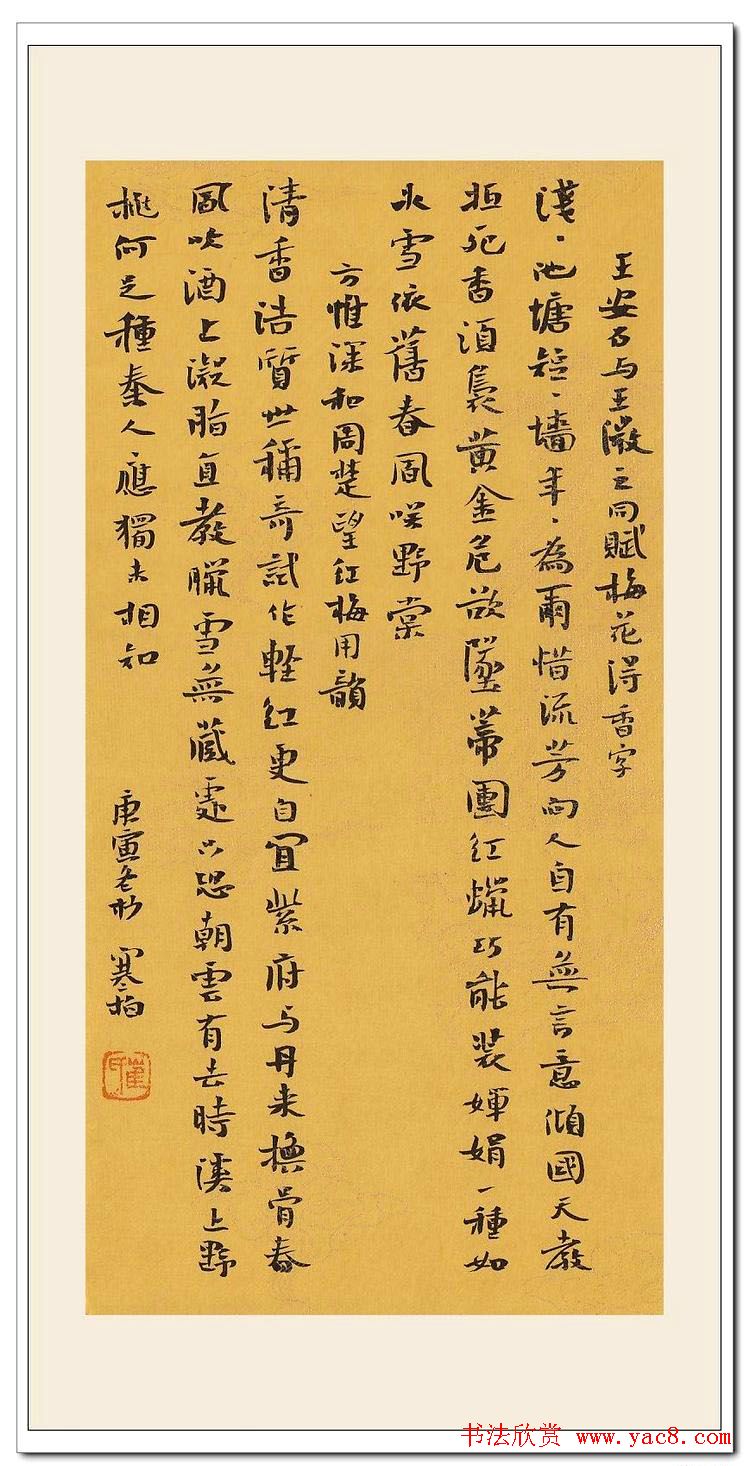 王安石与王微之同賦梅花得香字
淺淺池塘短短墻年年為爾惜流芳向人自有無言意傾國天教
抵死香須裊黃金危欲墜蒂團紅蠟巧能裝嬋娟一種如
冰雪依舊春風咲野棠
方惟深和周楚望红梅用韻
清香浩質世稱奇試作輕红更自宜紫府与丹来換骨春
風吹酒上凝脂直教臘雪無藏處只恐朝雲有去時溪上野
桃何足種秦人應獨未相知
庚寅冬初 寒柏
書法欣赏 www.yac8.com